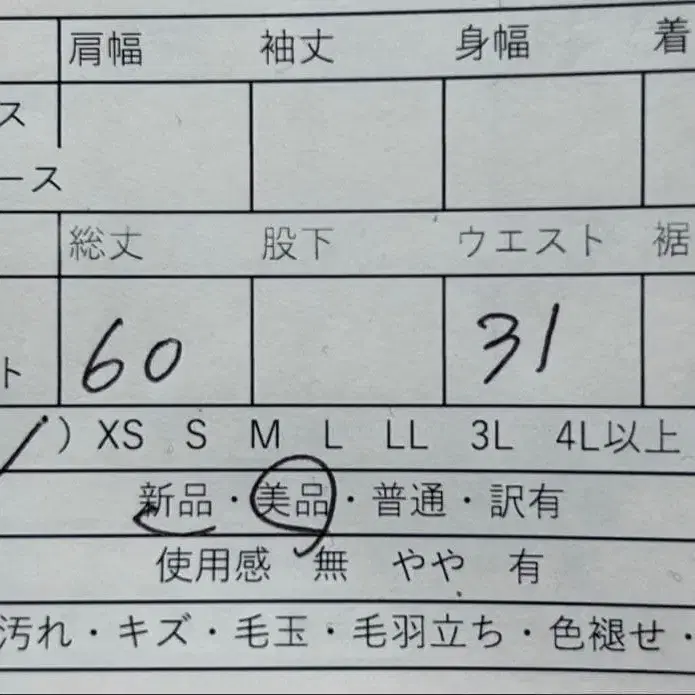 肩幅 袖丈 身幅 着
ス
ース
総丈 股下 ウエスト 裾
ト 60 31
) XS S M L LL 3L 4L以上
新品・美品・普通・訳有
使用感 無 やや 有
汚れ・キズ・毛玉・毛羽立ち・色褪せ・